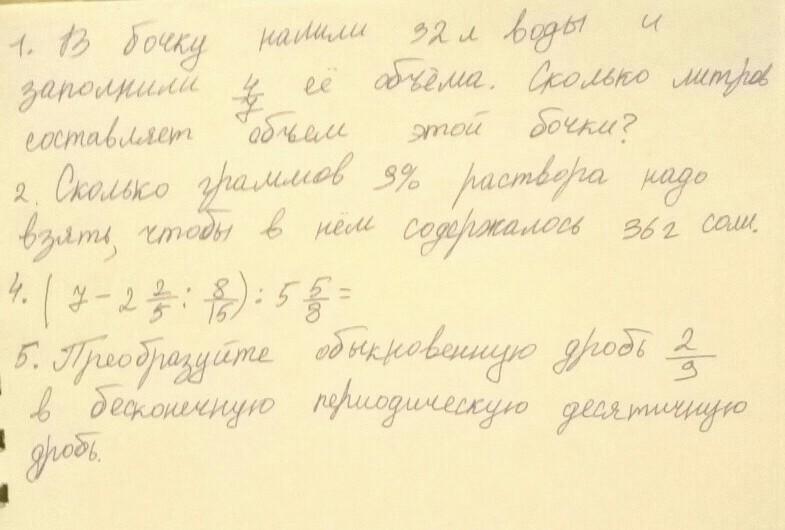 1. В бочку налили 32 л воды и
заполнили 4/7 её объёма. Сколько литров
составляет объем этой бочки?
2. Сколько граммов 9% раствора надо
взять, чтобы в нём содержалось 36 г соли.
4. ( 7 - 2 2/5 : 8/15 ) : 5 5/8 =
5. Преобразуйте обыкновенную дробь 2/9
в бесконечную периодическую десятичную
дробь.